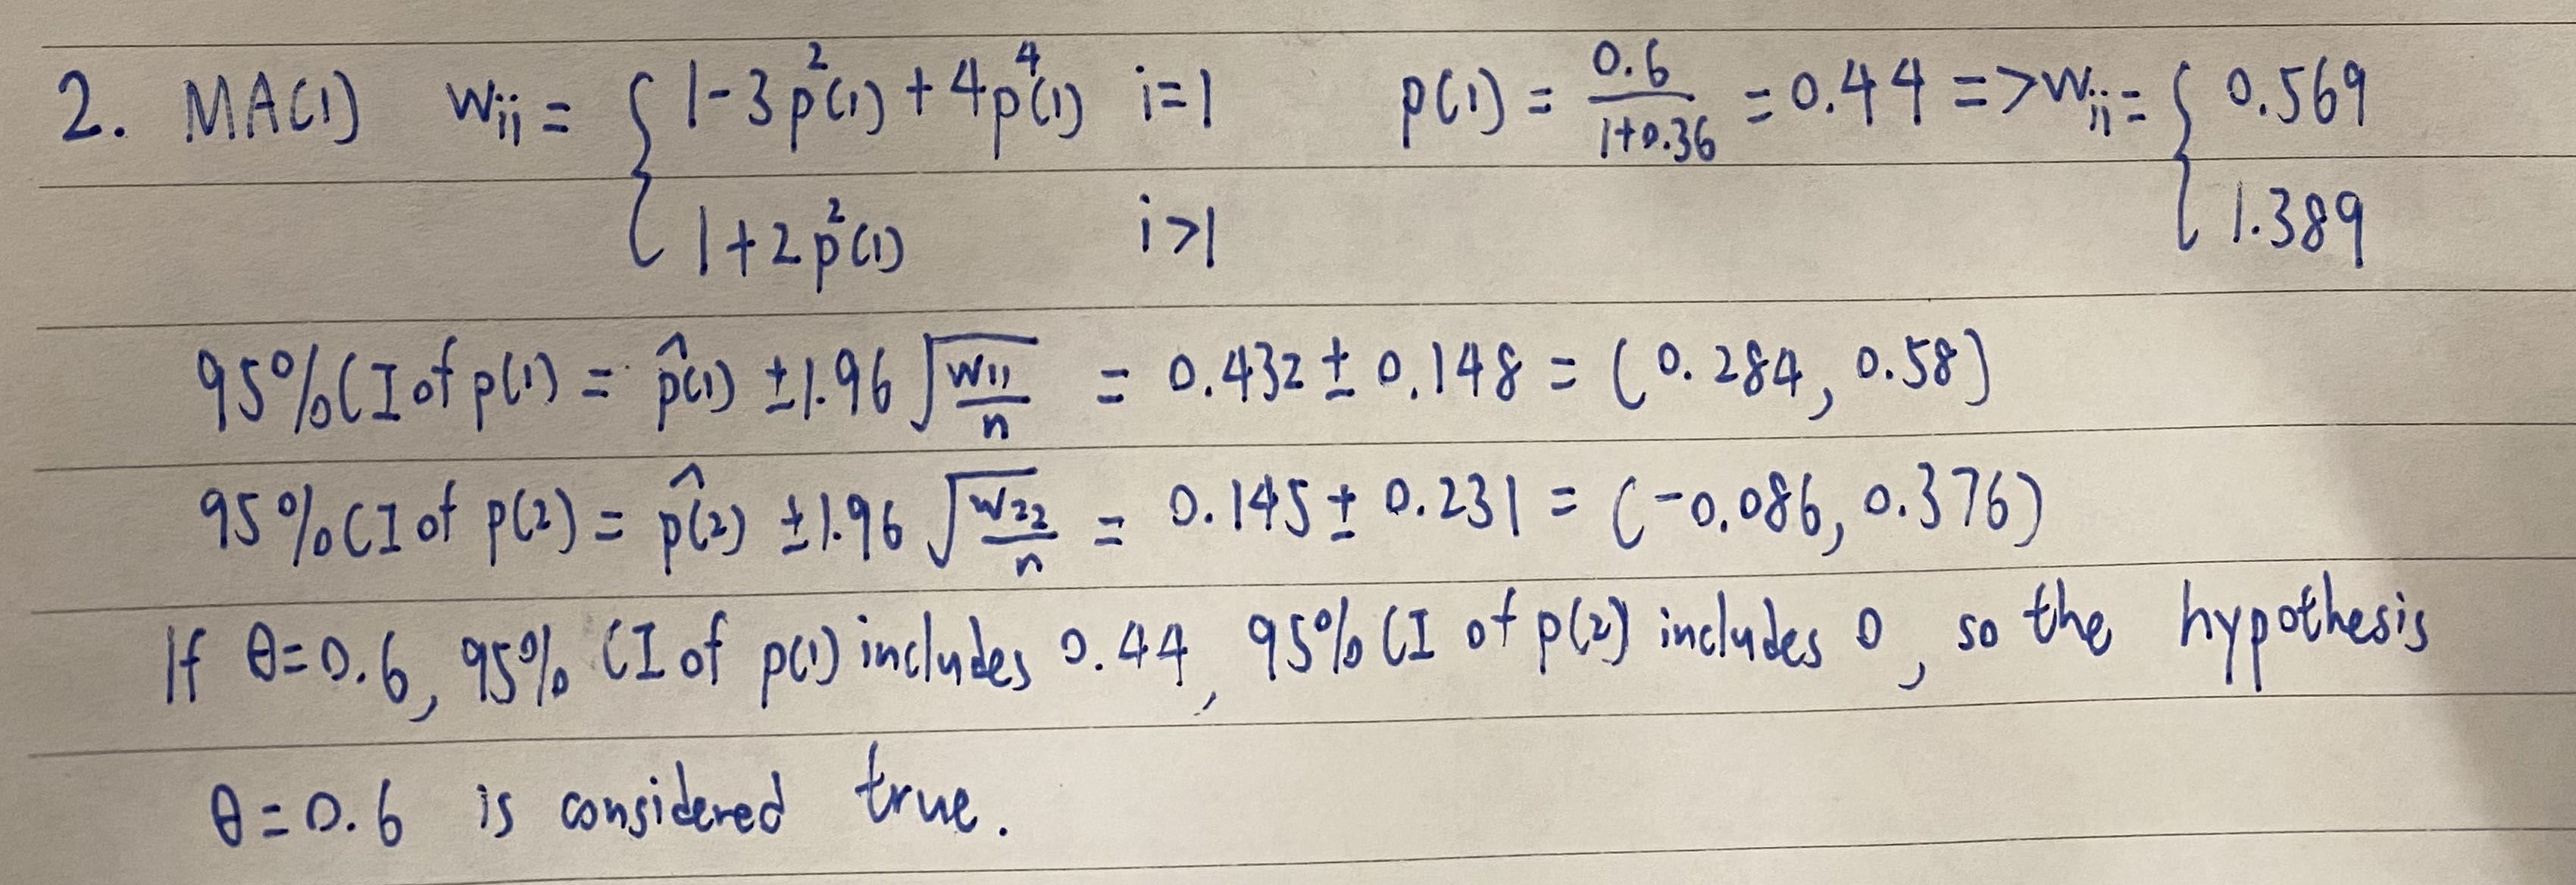 2. MA(1) Wii = { 1-3p²(1) + 4p⁴(1) i=1 p(1) = 0.6/(1+0.36) = 0.44 => Wii = { 0.569
1+2p²(1) i>1 1.389
95% CI of p(1) = p̂(1) ±1.96 √(W11/n) = 0.432 ± 0.148 = (0.284, 0.58)
95% CI of p(2) = p̂(2) ±1.96 √(W22/n) = 0.145 ± 0.231 = (-0.086, 0.376)
If θ=0.6, 95% CI of p(1) includes 0.44, 95% CI of p(2) includes 0, so the hypothesis
θ=0.6 is considered true.